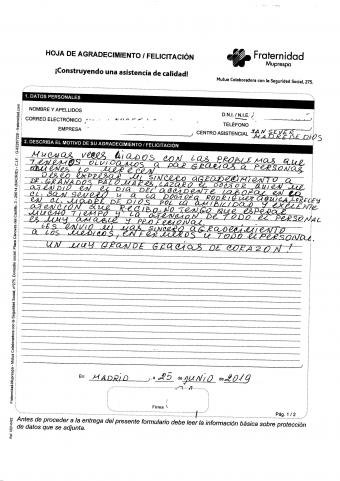 HOJA DE AGRADECIMIENTO / FELICITACIÓN
Fraternidad
Muprespa
¡Construyendo una asistencia de calidad!
Mutua Colaboradora con la Seguridad Social, 275.
1. DATOS PERSONALES
NOMBRE Y APELLIDOS
D.N.I. / N.I.E.
CORREO ELECTRÓNICO
TELÉFONO
EMPRESA
CENTRO ASISTENCIAL SAN SEVER
MADRE DE DIOS
2. DESCRIBA EL MOTIVO DE SU AGRADECIMIENTO / FELICITACIÓN
MUCHAS VECES LIADOS CON LAS PROBLEMAS QUE
TENEMOS OLVIDAMOS A DAR GRACIAS A PERSONAS
QUIENES LO MERECEN
QUIERO EXPRESAR MI SINCERO AGRADECIMIENTO A
DE GRANADOS PALOMARES, LAZARO EL DOCTOR QUIEN ME
ATENDIÓ EN EL DIA DEL ACCIDENTE LABORAL EN LA
CL. SAN SEVERO Y A LA DOCTORA RODRIGUEZ
EN CL MADRE DE DIOS POR LA AMIBILIDAD Y EXCELENTE
ATENCIÓN QUE RECIBO. NO TENGO QUE ESPERAR
MUCHO TIEMPO Y LA ATENCION DE TODO EL PERSONAL
ES MUY AMABLE Y PROFESIONAL.
LES ENVIO MI MAS SINCERO AGRADECIMIENTO
A LOS MEDICOS, ENFERMEROS Y TODO EL PERSONAL.
UN MUY GRANDE GRACIAS DE CORAZON!
En MADRID, a 25 de JUNIO de 2019
Firma
Pág. 1 / 2
Antes de proceder a la entrega del presente formulario debe leer la información básica sobre protección
de datos que se adjunta.